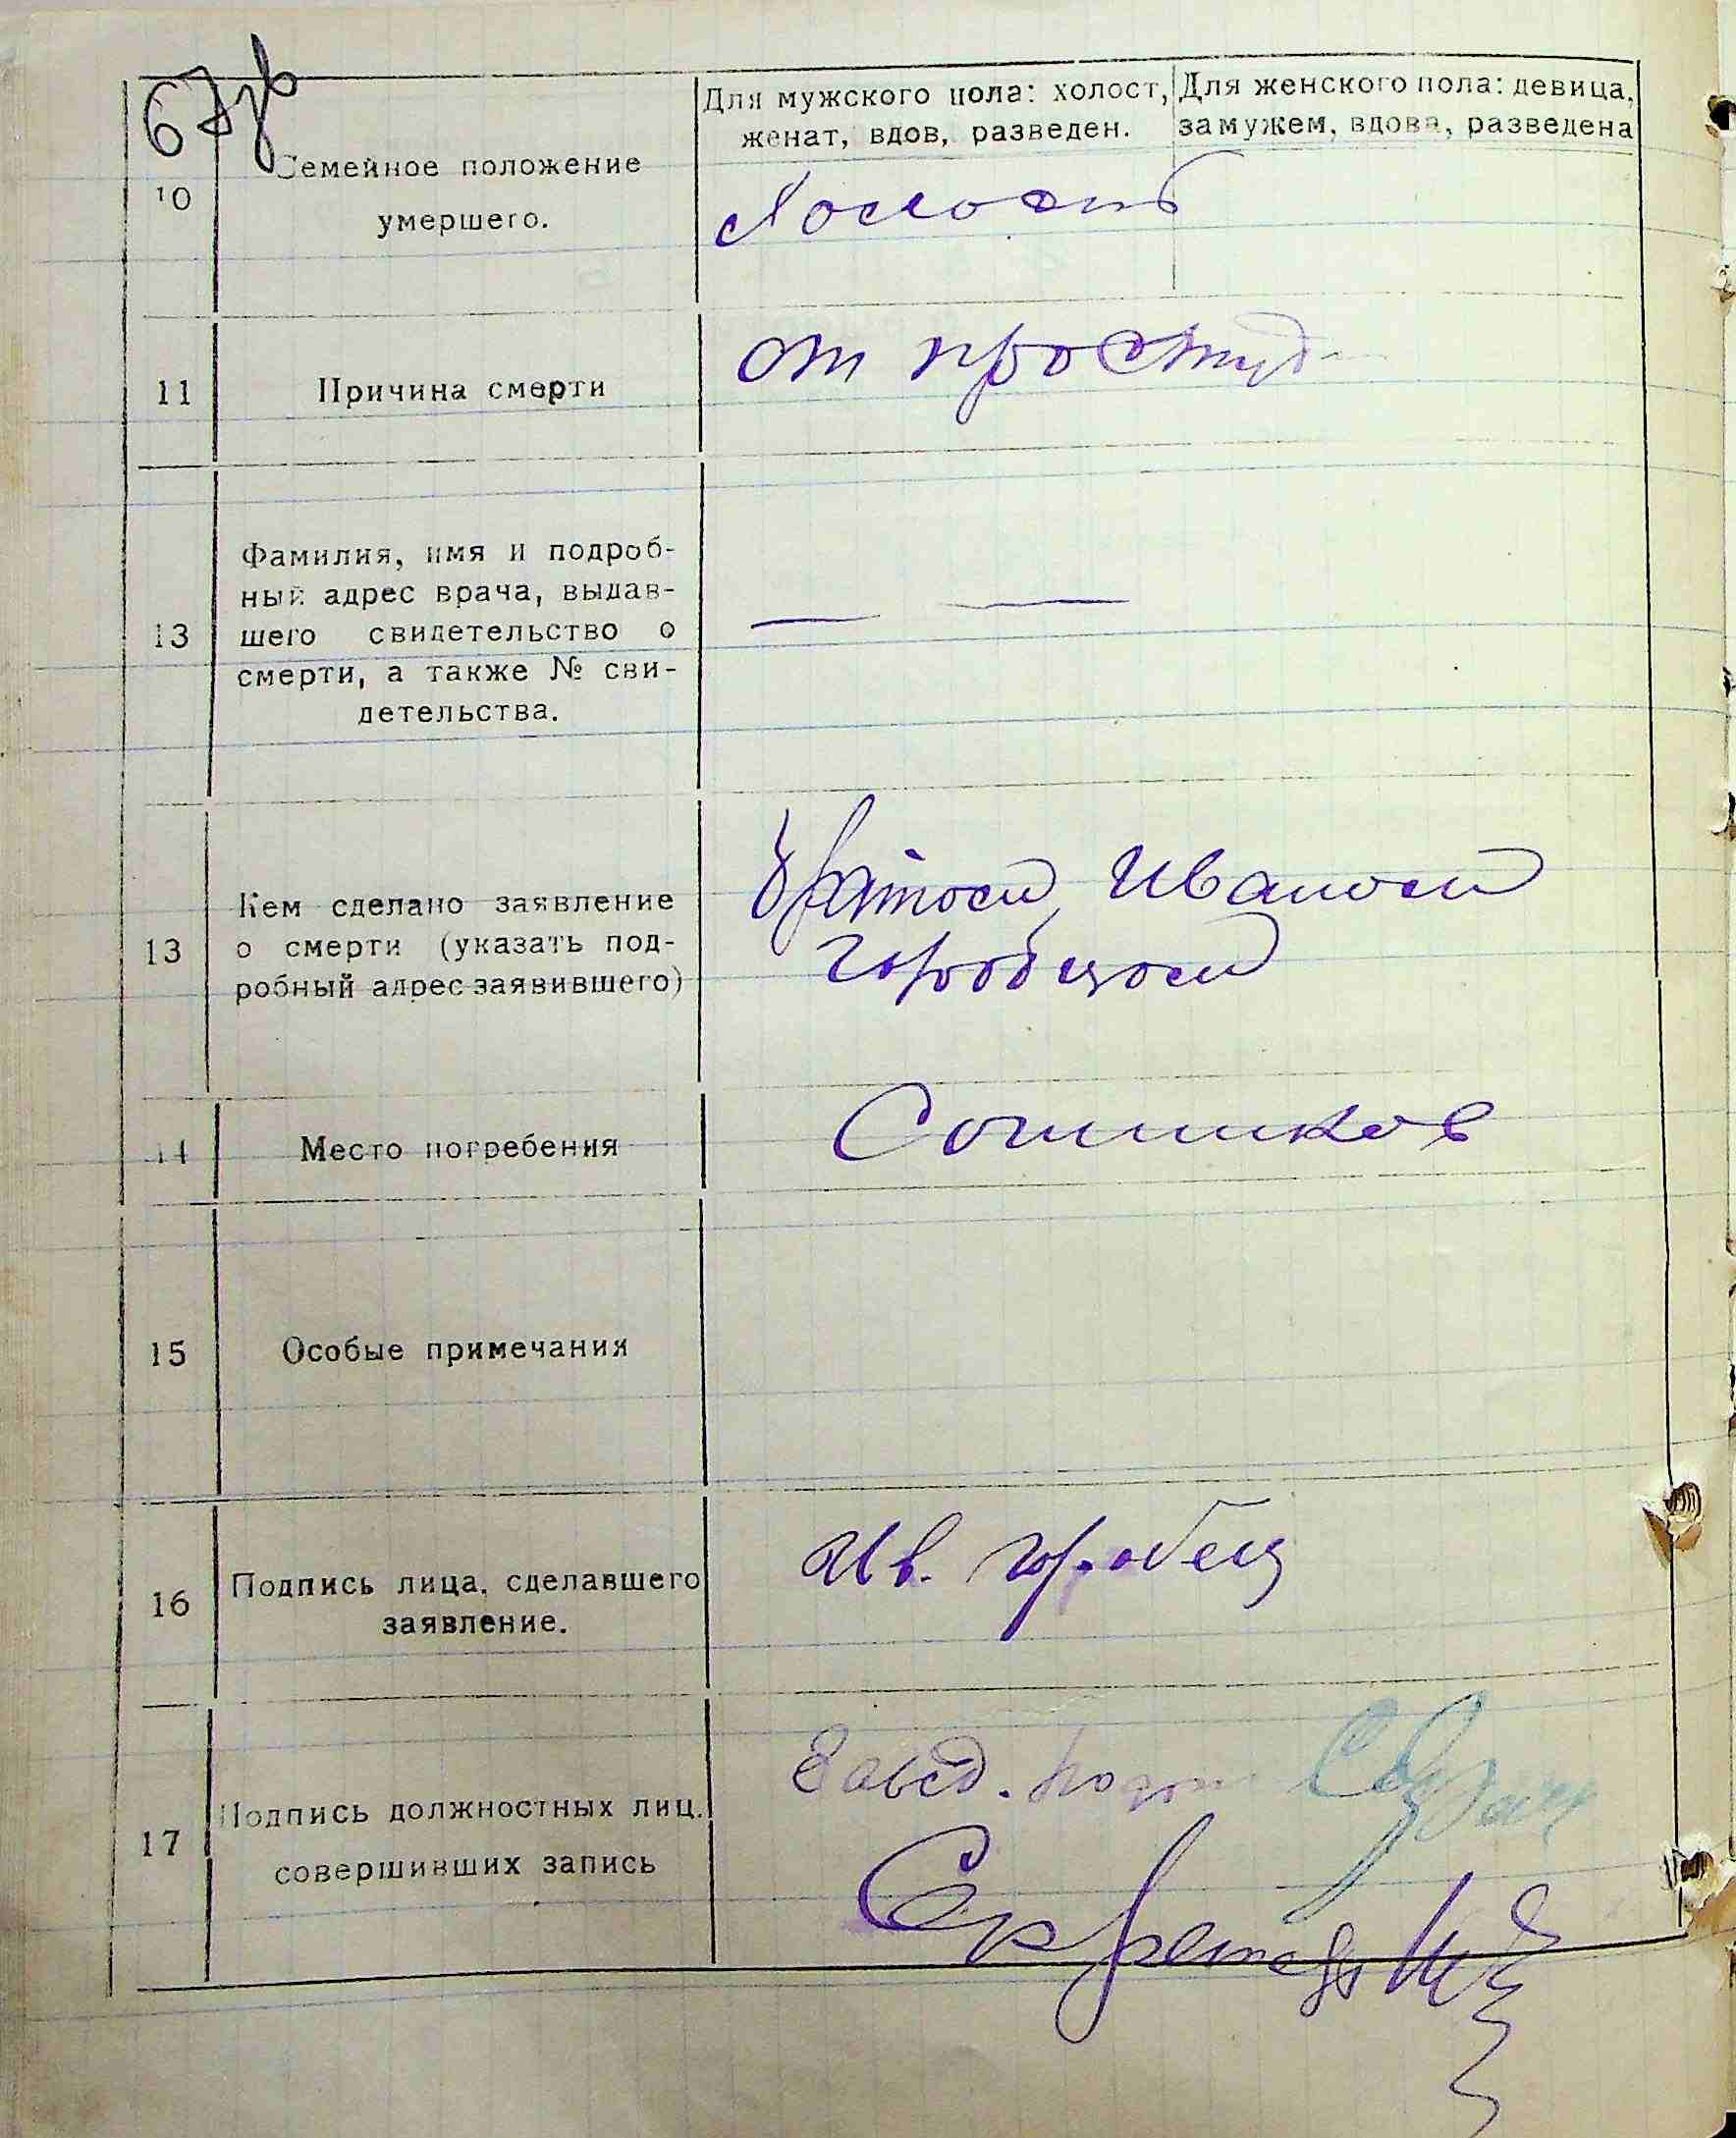 67
Для мужского пола: холост,
женат, вдов, разведен.
Для женского пола: девица,
замужем, вдова, разведена
10
Семейное положение
умершего.
Холост
11
Причина смерти
от простуд
13
Фамилия, имя и подроб-
ный адрес врача, выдав-
шего свидетельство о
смерти, а также № сви-
детельства.
— —
13
Кем сделано заявление
о смерти (указать под-
робный адрес заявившего)
братом Иваном
Горобцом
14
Место погребения
15
Особые примечания
16
Подпись лица, сделавшего
заявление.
Ив. Горобец
17
Подпись должностных лиц.
совершивших запись
Завед.
Секретарь